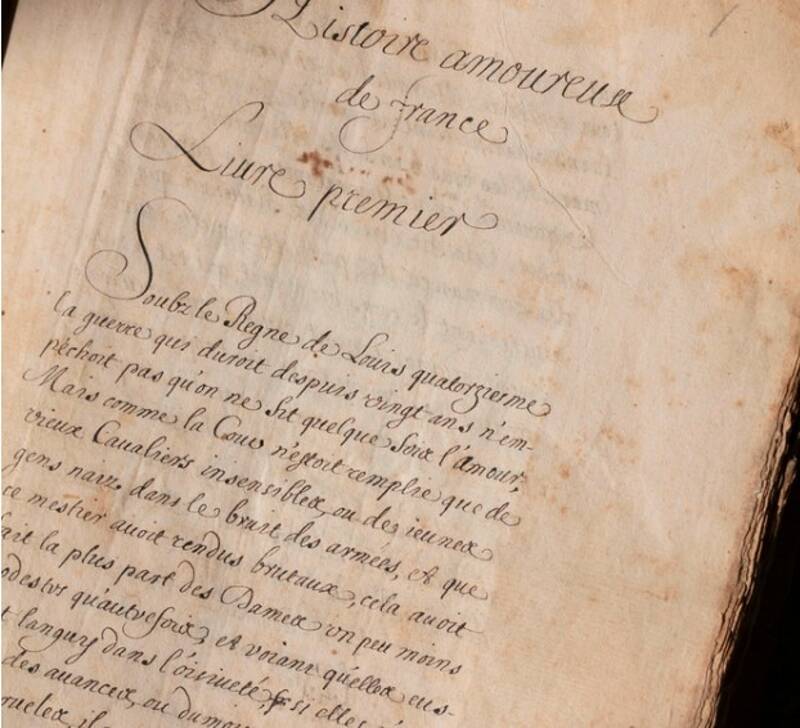 Histoire amoureuse
de France
Liure premier
Soubz le Regne de Louis quatorzieme
la guerre qui duroit despuis vingt ans n'em-
pechoit pas qu'on ne fit quelque foix l'amour,
Mais comme la Cour n'estoit remplie que de
vieux Caualiers insensiblex, ou dez ieunex
gens narz dans le bruit des armées, et que
ce mestier auoit rendus brutaux, cela auoit
fait la plus part des Damex vn peu moins
modestes qu'autrefoix, et voiant qu'ellex eus-
t languy dans l'oisiueté, si elles
des auancex, ou du mo
ruelex, il